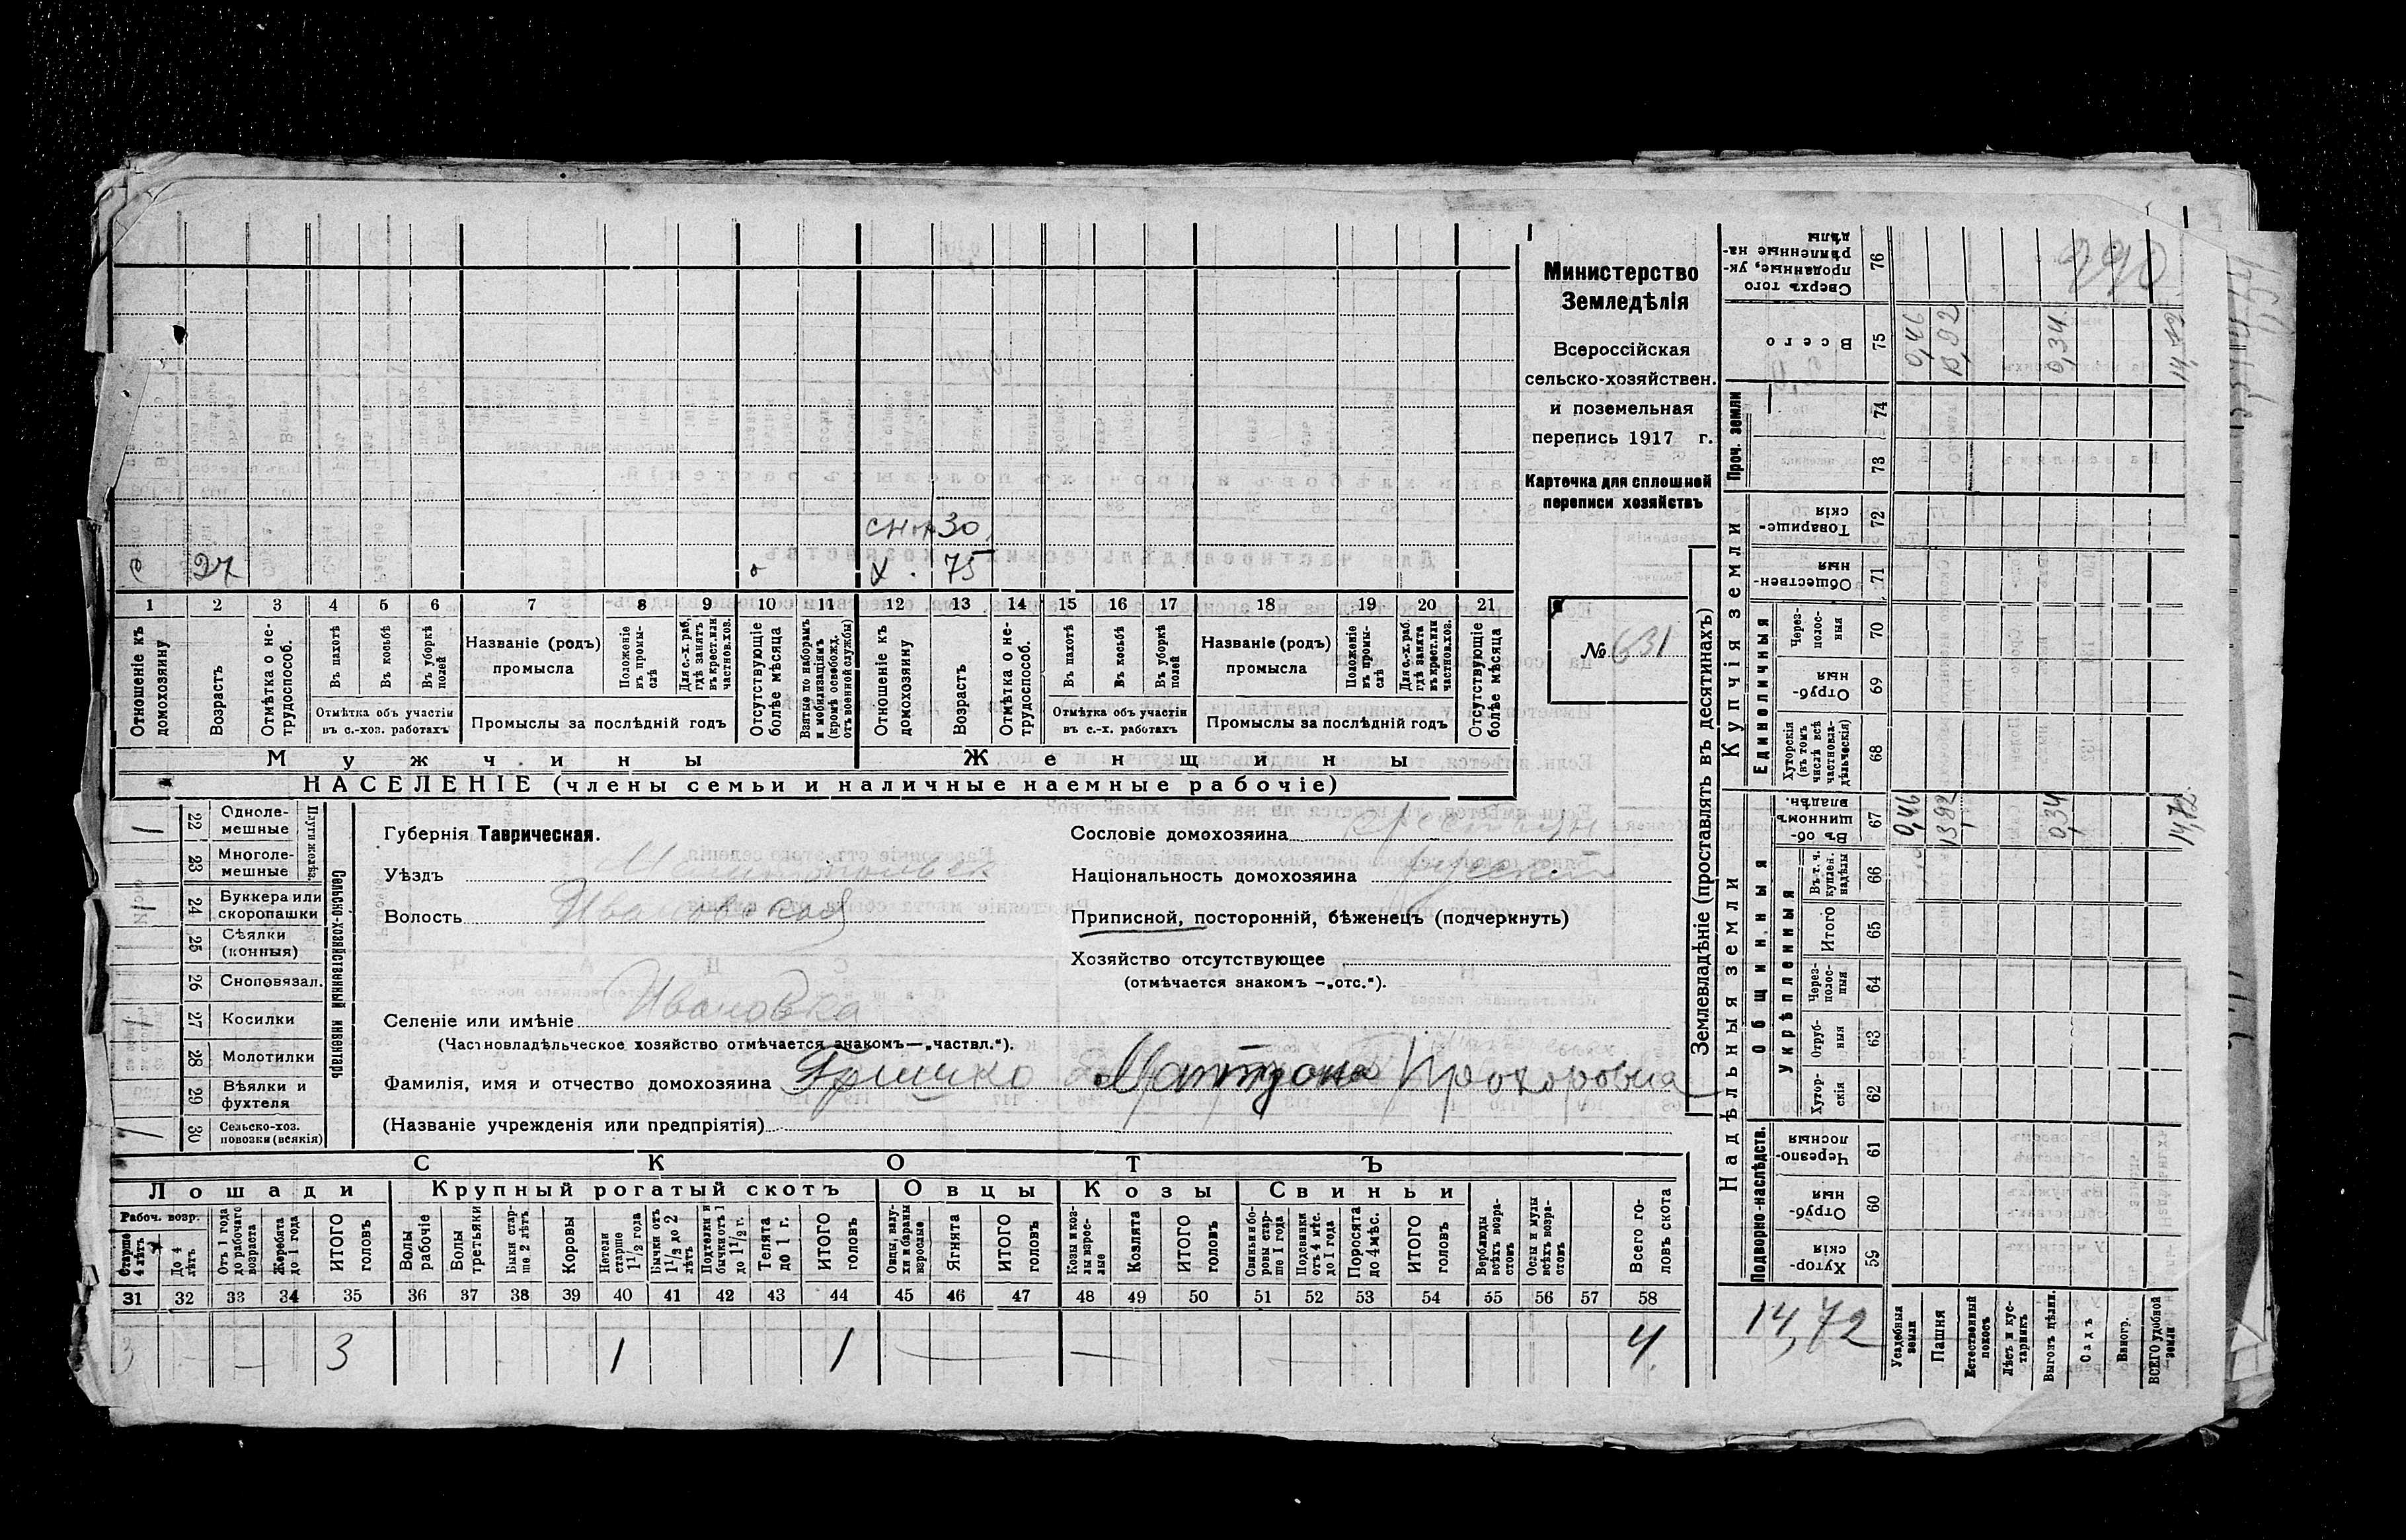 Министерство
Земледѣлія
Всероссійская
сельско-хозяйствен.
и поземельная
перепись 1917 г.
Карточка для сплошной
переписи хозяйствъ
№ 631
снт 30
с 27 х. 75
1 2 3 4 5 6 7 8 9 10 11 12 13 14 15 16 17 18 19 20 21
Отношеніе къ домохозяину
Возрастъ
Отмѣтка о не-трудоспособ.
Въ пахотѣ
Въ косьбѣ
Въ уборкѣ полей
Отмѣтка объ участіи въ с.-хоз. работахъ
Названіе (родъ) промысла
Положеніе въ промы-слѣ
Для с.-х. раб. гдѣ занятъ въ крест. или частнов. хоз.
Промыслы за послѣдній годъ
Отсутствующіе болѣе мѣсяца
Взятые по наборамъ и мобилизаціямъ (кромѣ освобожд. отъ военной службы)
Отношеніе къ домохозяину
Возрастъ
Отмѣтка о не-трудоспособ.
Въ пахотѣ
Въ косьбѣ
Въ уборкѣ полей
Отмѣтка объ участіи въ с.-х. работахъ
Названіе (родъ) промысла
Положеніе въ промы-слѣ
Для с.-х. раб. гдѣ занята въ крест. или частнов. хоз.
Промыслы за послѣдній годъ
Отсутствующіе болѣе мѣсяца
Мужчины Женщины
НАСЕЛЕНІЕ (члены семьи и наличные наемные рабочіе)
Сельско-хозяйственный инвентарь
Плуги желѣз.
1 22 Одноле-мешные
23 Многоле-мешные
24 Буккера или скоропашки
25 Сѣялки (конныя)
26 Сноповязал.
1 27 Косилки
28 Молотилки
29 Вѣялки и фухтеля
1 30 Сельско-хоз. повозки (всякія)
Губернія Таврическая.
Уѣздъ Мелитопольск
Волость Ивановская
Селеніе или имѣніе Ивановка
(Частновладѣльческое хозяйство отмѣчается знакомъ—„частвл.“).
Фамилія, имя и отчество домохозяина Гришко Матрона Прохоровна
(Названіе учрежденія или предпріятія)
Сословіе домохозяина крестьян
Національность домохозяина русский
Приписной, посторонній, бѣженецъ (подчеркнуть)
Хозяйство отсутствующее
(отмѣчается знакомъ —„отс.“).
СКОТЪ
Лошади Крупный рогатый скотъ Овцы Козы Свиньи
Рабоч. возр.
Старше 4 лѣтъ
До 4 лѣтъ
Отъ 1 года до рабочаго возраста
Жеребята до 1 года
ИТОГО головъ
Волы рабочіе
Волы третьяки
Быки стар-ше 2 лѣтъ
Коровы
Нетели старше 1½ года
Бычки отъ 1½ до 2 лѣтъ
Подтелки и бычки отъ 1 до 1½ г.
Телята до 1 г.
ИТОГО головъ
Овцы, валу-хи и бараны взрослые
Ягнята
ИТОГО головъ
Козы и коз-лы взрос-лые
Козлята
ИТОГО головъ
Свиньи и бо-ровы стар-ше 1 года
Подсвинки отъ 4 мѣс. до 1 года
Поросята до 4 мѣс.
ИТОГО головъ
Верблюды всѣхъ возра-стовъ
Ослы и мулы всѣхъ возра-стовъ
Всего го-ловъ скота
31 32 33 34 35 36 37 38 39 40 41 42 43 44 45 46 47 48 49 50 51 52 53 54 55 56 57 58
3 — — 3 1 1 — — — 4
Землевладѣніе (проставлять въ десятинахъ)
Надѣльныя земли
Купчія земли
Проч. земли
Подворно-наслѣдств.
Общинныя
Укрѣпленныя
Единоличныя
Сверхъ того проданные, ук-рѣпленные на-дѣлы 76
Всего 75
74
73
Товарище-скія 72
Обществен-ныя 71
Через-полос-ныя 70
Отруб-ныя 69
Хуторскія (въ томъ числѣ всѣ частновла-дѣльческія) 68
Въ об-щинномъ владѣн. 67
Въ т. ч. куплен. надѣлы 66
Итого 65
Через-полос-ныя 64
Отруб-ныя 63
Хутор-скія 62
Черезпо-лосныя 61
Отруб-ныя 60
Хутор-скія 59
290
0,46 13,92 0,34 14,72
0,46 13,92 0,34 14,72
14,72
Усадебныя земли
Пашня
Естественный покосъ
Лѣсъ и кус-тарник
Выгонъ цѣлин.
Садъ
Виногр.
ВСЕГО удобной земли